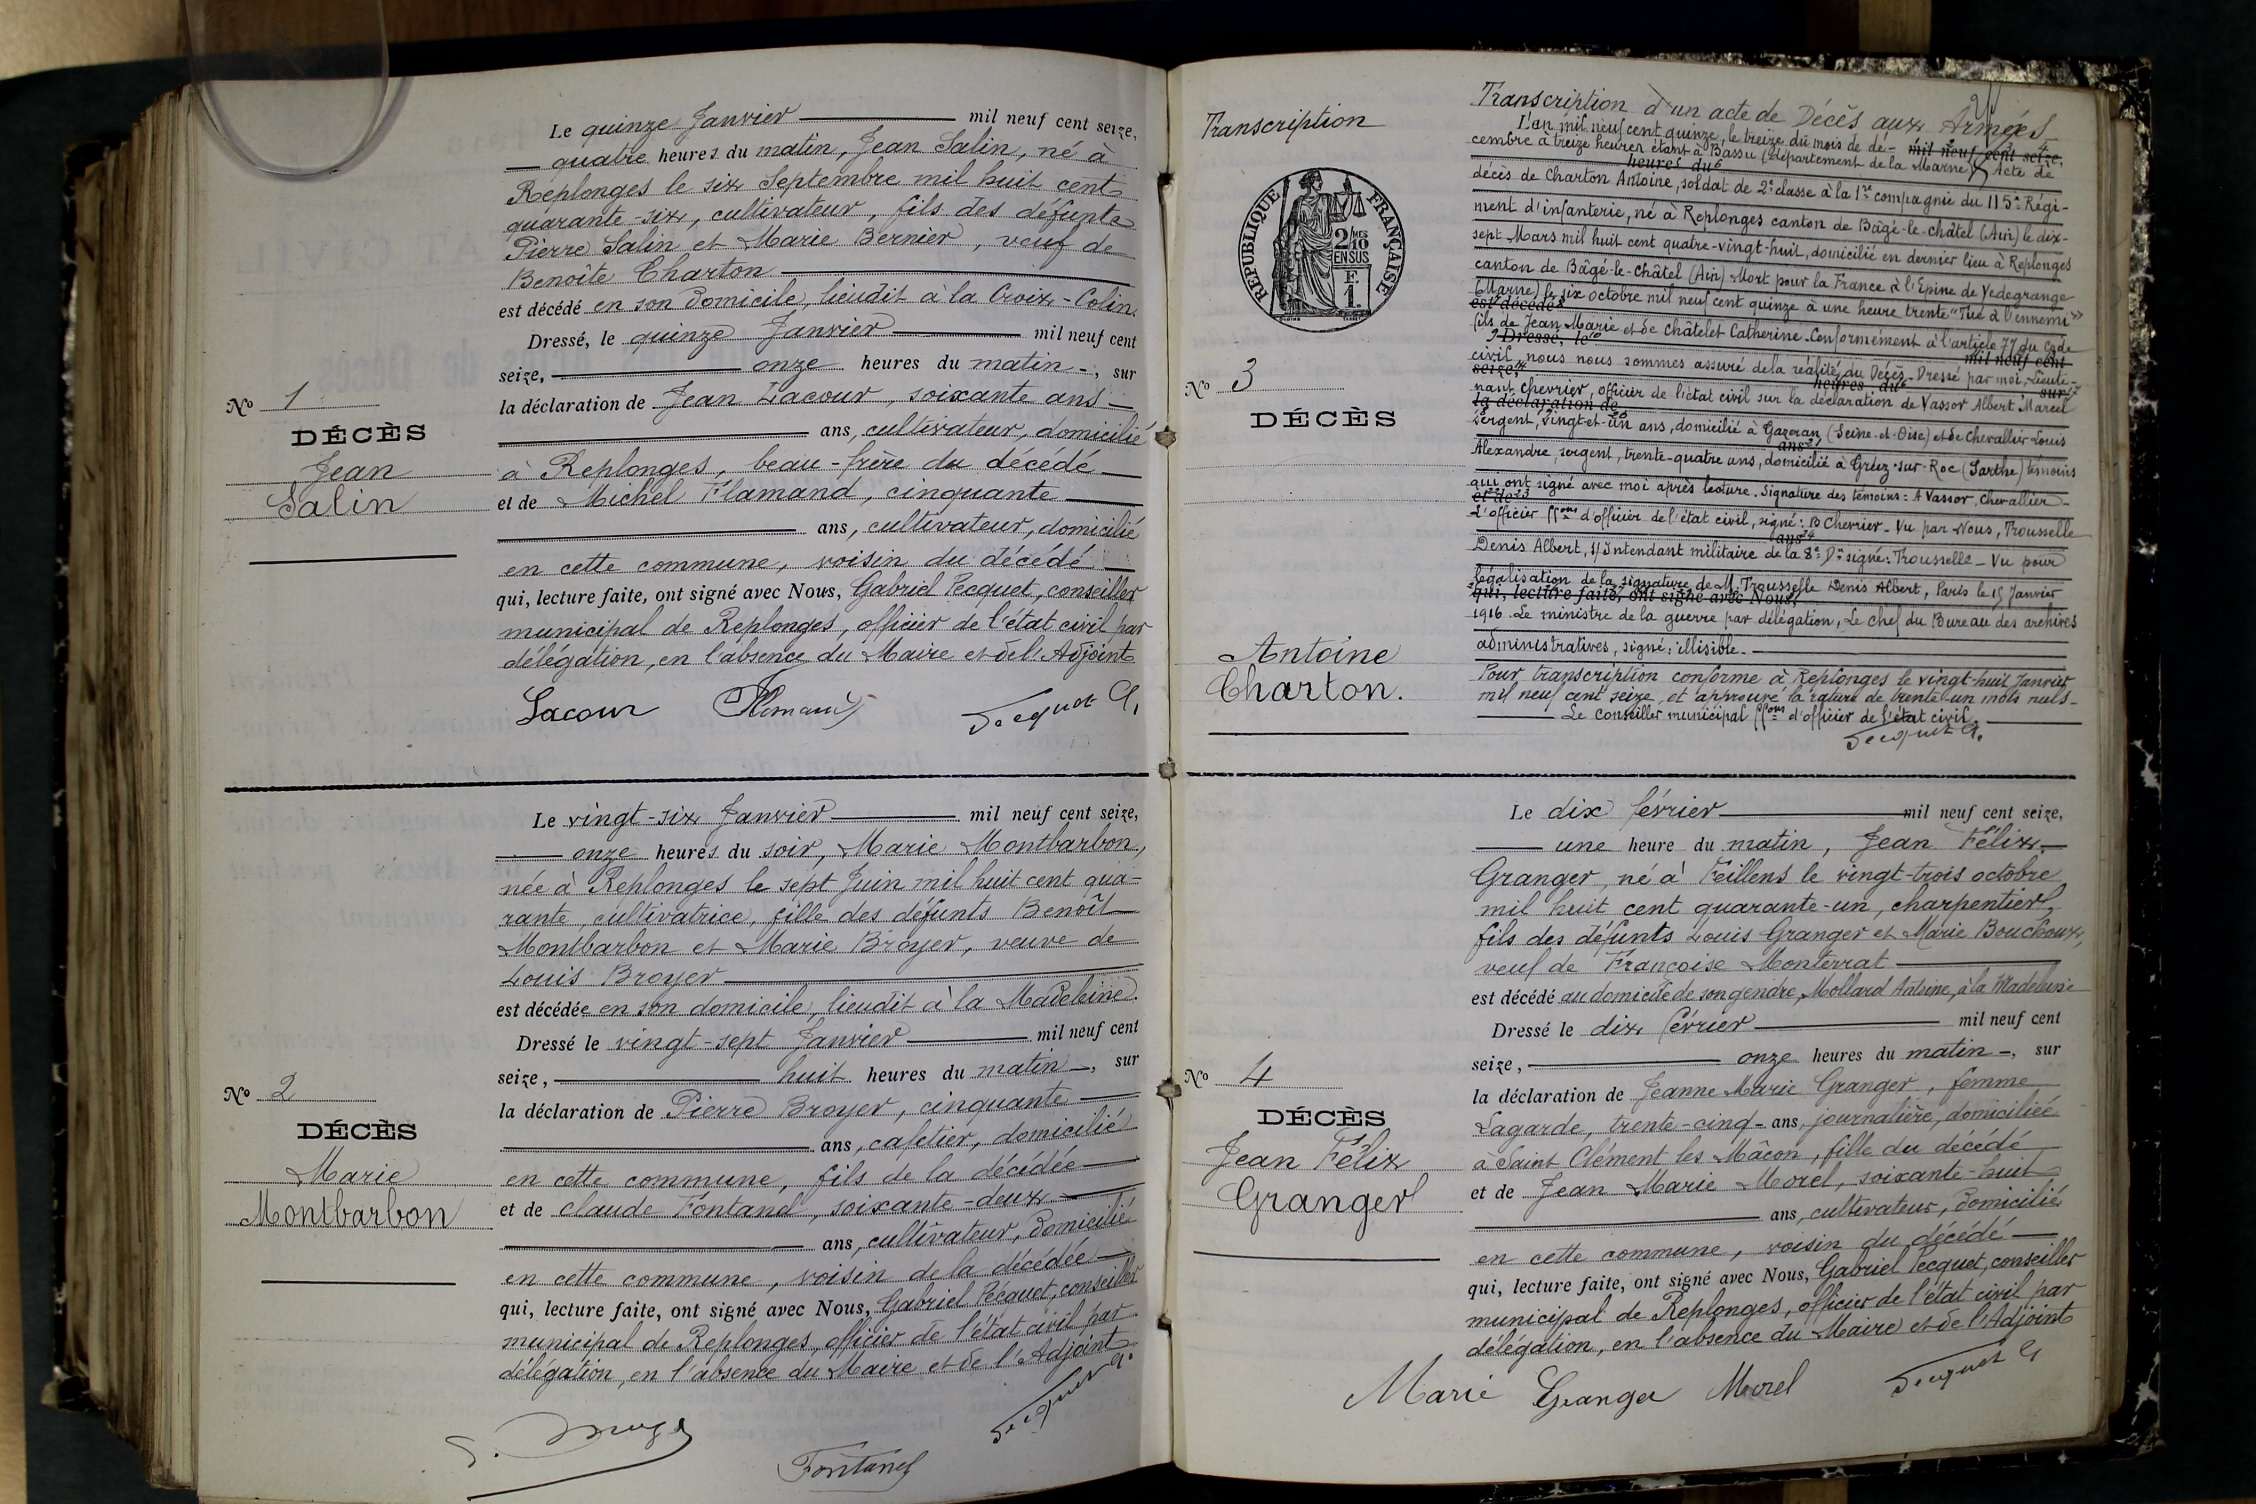 Le quinze Janvier mil neuf cent seize,
quatre heures du matin, Jean Salin, né à
Replonges le six Septembre mil huit cent
quarante-six, cultivateur, fils des défunts
Pierre Salin et Marie Bernier, veuf de
Benoîte Charton
est décédé en son domicile, lieudit à la Croix-Colin.
Dressé, le quinze Janvier mil neuf cent
seize, onze heures du matin -, sur
la déclaration de Jean Lacour, soixante ans
ans, cultivateur, domicilié
à Replonges, beau-frère du décédé
et de Michel Flamand, cinquante
ans, cultivateur, domicilié
en cette commune, voisin du décédé
qui, lecture faite, ont signé avec Nous, Gabriel Pecquet, conseiller
municipal de Replonges, officier de l'état civil par
délégation, en l'absence du Maire et de l'Adjoint
Lacour Flamand Pecquet G.
No 1
DÉCÈS
Jean
Salin
Le vingt-six Janvier mil neuf cent seize,
onze heures du soir, Marie Montbarbon,
née à Replonges le sept Juin mil huit cent qua=
rante, cultivatrice, fille des défunts Benoît
Montbarbon et Marie Broyer, veuve de
Louis Broyer
est décédée en son domicile, lieudit à la Madeleine.
Dressé le vingt-sept Janvier mil neuf cent
seize, huit heures du matin -, sur
la déclaration de Pierre Broyer, cinquante
ans, cafetier, domicilié
en cette commune, fils de la décédée
et de Claude Fontand, soixante-deux
ans, cultivateur, domicilié
en cette commune, voisin de la décédée
qui, lecture faite, ont signé avec Nous, Gabriel Pecquet, conseiller
municipal de Replonges, officier de l'état civil par
délégation, en l'absence du Maire et de l'Adjoint
Pecquet G.
Fontand
No 2
DÉCÈS
Marie
Montbarbon
Transcription
RÉPUBLIQUE FRANÇAISE
2 MES
10
EN SUS
F
1.
No 3
DÉCÈS
Antoine
Charton.
Transcription d'un acte de Décès aux Armées
L'an mil neuf cent quinze, le treize du mois de dé- mil neuf cent seize,
cembre à treize heures étant à Bassu (département de la Marne) Acte de
heures du
décès de Charton Antoine, soldat de 2e classe à la 1re compagnie du 115e Régi-
ment d'infanterie, né à Replonges canton de Bâgé-le-châtel (Ain) le dix-
sept Mars mil huit cent quatre-vingt-huit, domicilié en dernier lieu à Replonges
canton de Bâgé-le-châtel (Ain) Mort pour la France à l'Epine de Vedegrange
(Marne) le six octobre mil neuf cent quinze à une heure trente "Tué à l'ennemi"
est décédé
fils de Jean Marie et de Châtelet Catherine. Conformément à l'article 77 du Code
Dressé, le mil neuf cent
civil, nous nous sommes assuré de la réalité du Décès - Dressé par moi, Lieute-
seize, heures du sur
nant Chevrier, officier de l'état civil sur la déclaration de Vassor Albert Marcel
la déclaration de
Sergent, vingt-et-un ans, domicilié à Gazeran (Seine-et-Oise) et de Chevallier Louis
ans
Alexandre, sergent, trente-quatre ans, domicilié à Gréez-sur-Roc (Sarthe) témoins
qui ont signé avec moi après lecture. Signature des témoins: A Vassor, Chevallier -
et de
L'officier ffons d'officier de l'état civil, signé: B Chevrier - Vu par Nous, Trousselle
ans
Denis Albert, S/Intendant militaire de la 8e Don signé: Trousselle - Vu pour
légalisation de la signature de M. Trousselle Denis Albert, Paris le 15 Janvier
qui, lecture faite, ont signé avec Nous,
1916. Le ministre de la guerre par délégation, Le chef du Bureau des archives
administratives, signé: illisible.
Pour transcription conforme à Replonges le vingt-huit Janvier
mil neuf cent seize, et approuvé la rature de trente-un mots nuls -
Le Conseiller municipal ffons d'officier de l'état civil,
Pecquet G.
Le dix février mil neuf cent seize,
une heure du matin, Jean Félix
Granger, né à Feillens le vingt-trois octobre
mil huit cent quarante-un, charpentier,
fils des défunts Louis Granger et Marie Bouchoux,
veuf de Françoise Monterrat
est décédé au domicile de son gendre, Mollard Antoine, à la Madeleine
Dressé le dix février mil neuf cent
seize, onze heures du matin -, sur
la déclaration de Jeanne Marie Granger, femme
Lagarde, trente-cinq - ans, journalière, domiciliée
à Saint Clément les Mâcon, fille du décédé
et de Jean Marie Morel, soixante-huit
ans, cultivateur, domicilié
en cette commune, voisin du décédé
qui, lecture faite, ont signé avec Nous, Gabriel Pecquet, conseiller
municipal de Replonges, officier de l'état civil par
délégation, en l'absence du Maire et de l'Adjoint
Marie Granger Morel Pecquet G
No 4
DÉCÈS
Jean Félix
Granger